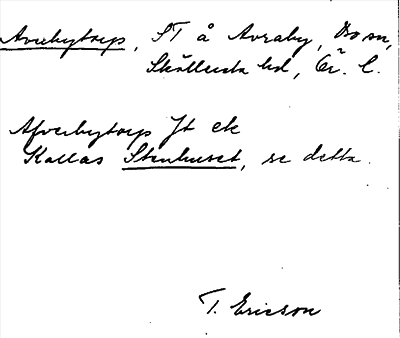 Averbytorp, ST å Avraby, Do sn,
Skölleista hd, Ör. l.
Afverbytorp Jt ek
Kallas Stenhuset, se detta.
T. Ericson